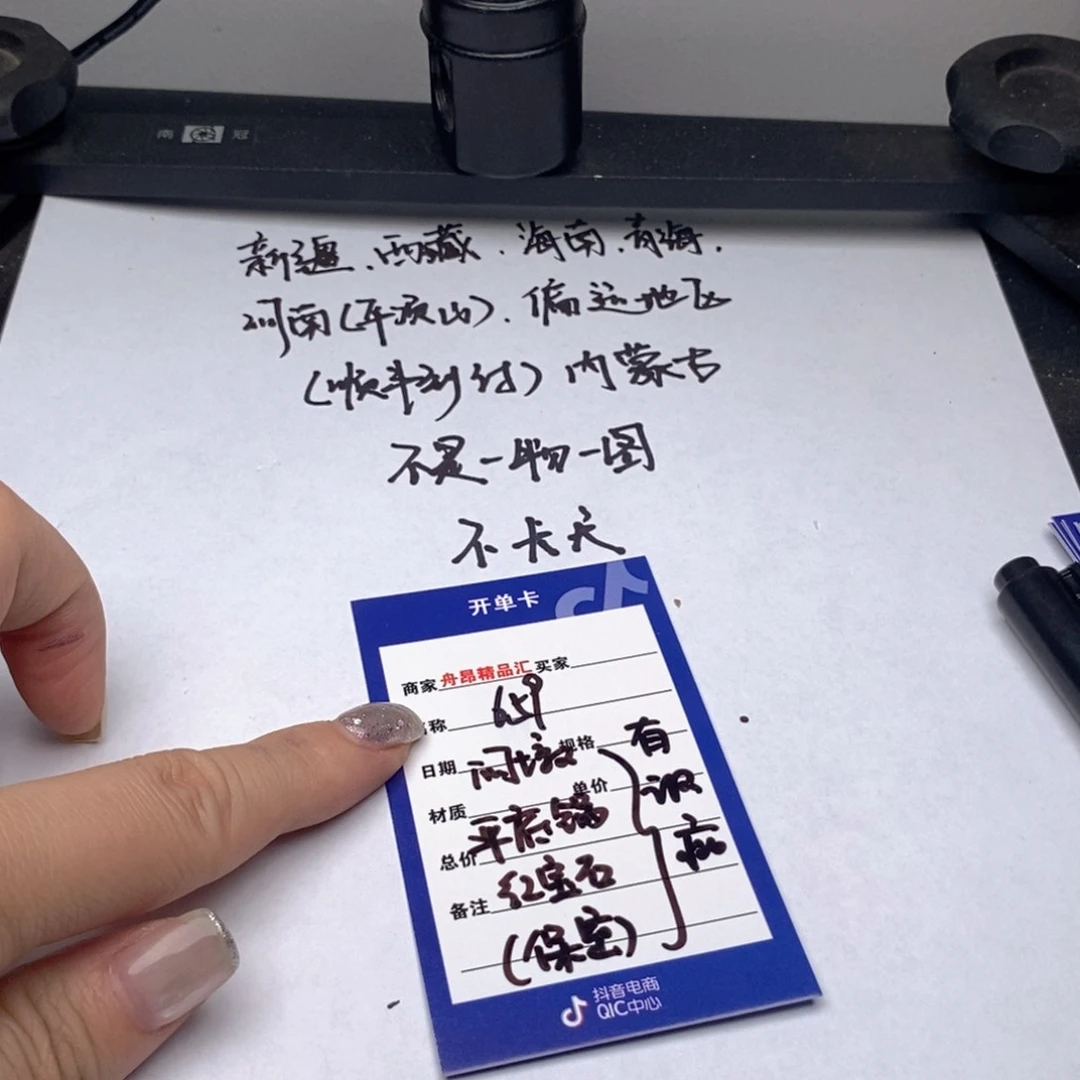 南 冠
新疆、西藏、海南、青海、
河南(平顶山)、偏远地区
(顺丰到付)内蒙古
不是一物一图
不卡天
开单卡
商家 舟昂精品汇 买家
称 659
日期 规格 有
材质 单价
总价 平底锅
备注 红宝石
(保宝)
抖音电商
QIC中心